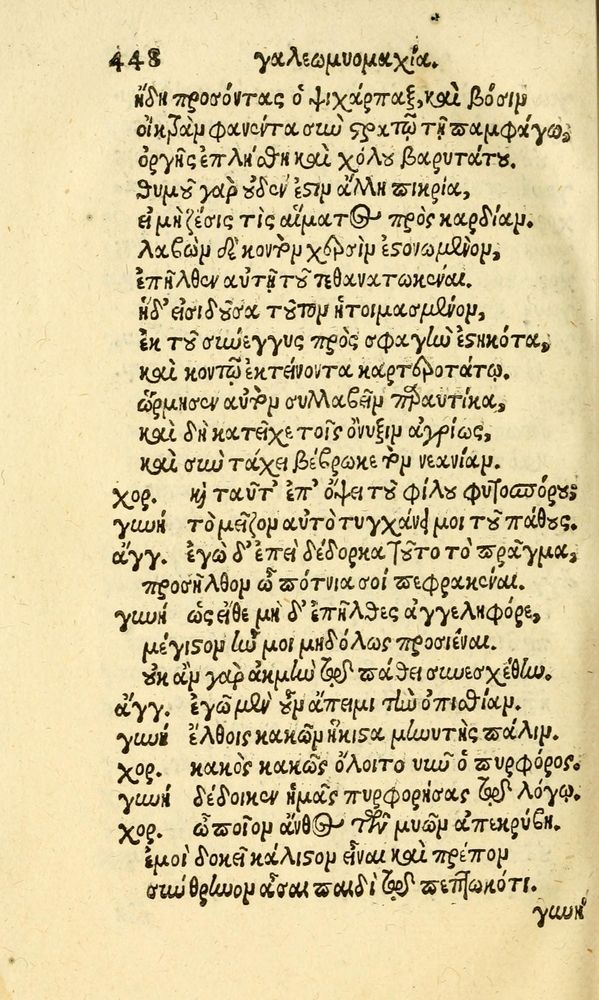 448 γαλεωμυομαχία.
ἤδη προσόντας ὁ ψιχάρπαξ, καὶ βόσιν
οἰκτρὰν φανέντα σὺν στρατῷ τῇ παμφάγῳ,
ὀργῆς ἐπλήσθη καὶ χόλου βαρυτάτου.
θυμοῦ γὰρ οὐδέν ἐστιν ἄλλη πικρία,
εἰ μὴ ζέσις τὶς αἵματος πρὸς καρδίαν.
λαβὼν δὲ κοντὸν χερσὶν ἐστονωμένον,
ἐπῆλθεν αὐτὴ τοῦτ πεθανατωκέναι.
ἡδ' εἰσιδοῦσα τοῦτον ἡτοιμασμένον,
ἐκ τοῦ συνέγγυς πρὸς σφαγὴν ἑστηκότα,
καὶ κοντῷ ἐκτείνοντα καρτερωτάτῳ.
ὥρμησεν αὐτὸν συλλαβεῖν παραυτίκα,
καὶ δὴ κατεῖχε τοῖς ὄνυξιν ἀγρίως,
καὶ σὺν τάχει βέβρωκε τὸν νεανίαν.
χορ. καὶ ταῦτ' ἐπ' ὄψει τοῦ φίλου φυτοσπόρου;
γυνή τὸ μεῖζον αὐτὸ τυγχάνει μοι τοῦ πάθους.
ἄγγ. ἐγὼ δ' ἐπεὶ δέδορκα τοῦτο τὸ πρᾶγμα,
προσῆλθον ὦ πότνια σοὶ πεφρακέναι.
γυνή ὡς εἴθε μὴ δ' ἐπῆλθες ἀγγεληφόρε,
μέγιστον ἦν μοι μηδόλως προσιέναι.
οὐκ ἂν γὰρ ἀκμὴν τῷ πάθει συνεσχέθην.
ἄγγ. ἐγὼ μὲν οὖν ἄπειμι τὴν ὀπισθίαν.
γυνή ἔλθοις κακῶν ἥκιστα μηνυτὴς πάλιν.
χορ. κακὸς κακῶς ὄλοιτο νῦν ὁ πυρφόρος.
γυνή δέδοικεν ἡμᾶς πυρφορήσας τῷ λόγῳ.
χορ. ὦ ποῖον ἄνθος τῶν μυῶν ἀπεκρύβη.
ἐμοὶ δοκεῖ κάλιστον εἶναι καὶ πρέπον
σὺν θρήνον ᾆσαι παιδὶ τῷ πεπτωκότι.
γυνή